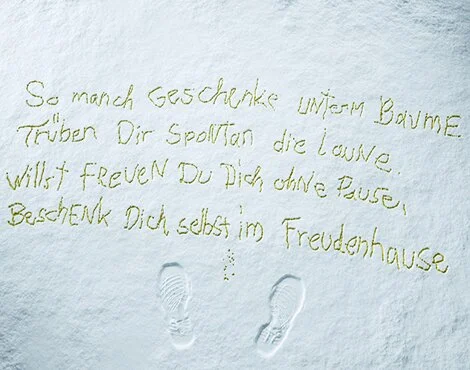 So manch Geschenke unterm Baume
Trüben Dir spontan die Laune.
Willst freuen Du Dich ohne Pause,
Beschenk Dich selbst im Freudenhause